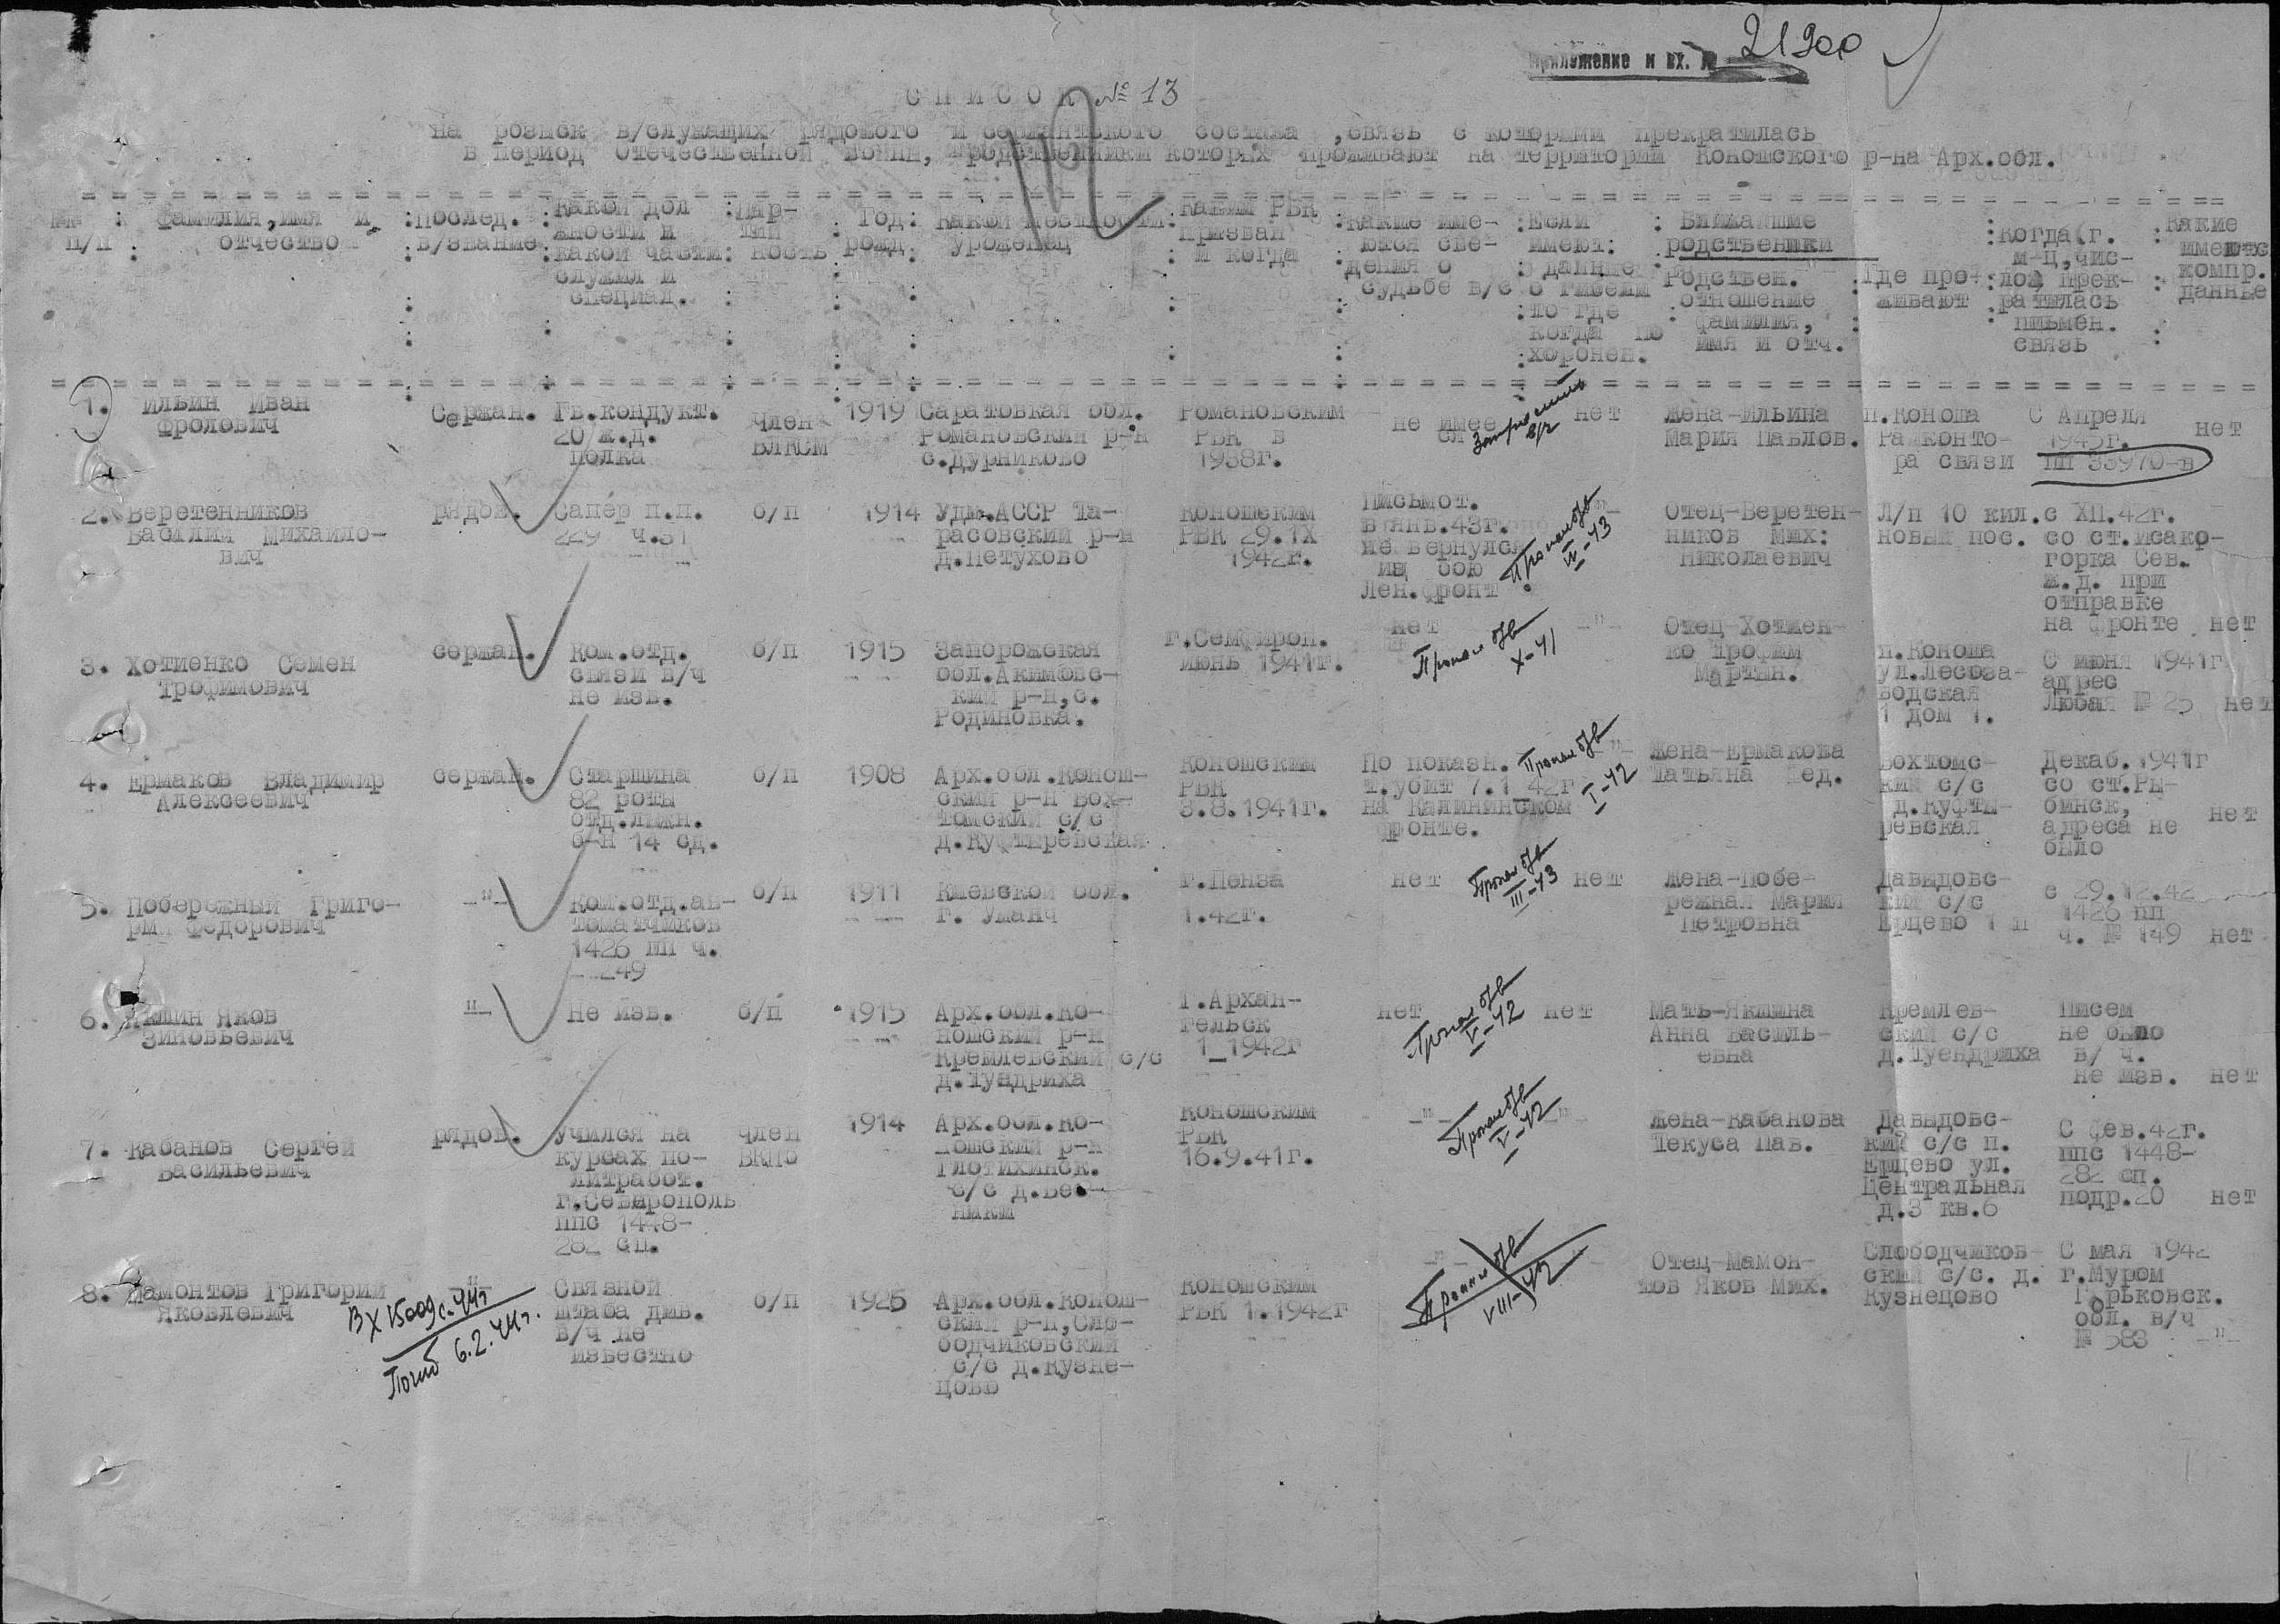 Приложение и вх. № 21900
СПИСОК № 13
на розыск в/служащих рядового и сержантского состава ,связь с которыми прекратилась
в период Отечественной войны, родственники которых проживают на территории Коношского р-на Арх.обл.
№№ п/п
Фамилия,имя и отчество
Послед. в/звание
Какой дол жности и какой части служил и специал.
Пар- тий ность
Год рожд.
Какой местности уроженец
Каким РВК призван и когда
Какие име- ются све- дения о судьбе в/с
Если имеют: данные о гибели то где когда по хоронен.
Ближайшие родственники
Родствен. отношение фамилия, имя и отч.
Где про- живают
Когда г. м-ц,чис- ло, прек- ратилась письмен. связь
Какие имеютс компр. данные
1. Ильин Иван Фролович
Сержан.
Гв.кондукт. 20 ж.д. полка
Член ВЛКСМ
1919
Саратовкая обл. Романовский р-н с.Дурниково
Романовским РВК в 1938г.
не имее ся
Запросить в/ч
нет
Жена-Ильина Мария Павлов.
п.Коноша Райконто- ра связи
С Апреля 1945г. ПП 33970-в
нет
2. Веретенников Василий Михайло- вич
рядов.
Сапер п.п. 229 ч.31
б/п
1914
Удм.АССР Та- расовский р-н д.Петухово
Коношским РВК 29.IX 1942г.
Письмот. в янв.43г. не вернулся из бою Лен.фронт
Пропал б/в IV-43
-"-
Отец-Веретен- ников Мих: Николаевич
Л/п 10 кил. новый пос.
с XII.42г. со ст.Исако- горка Сев. ж.д. при отправке на фронте
нет
3. Хотиенко Семен Трофимович
сержан.
Ком.отд. связи в/ч не изв.
б/п
1915
Запорожская обл.Акимовс- кий р-н,с. Родиновка.
г.Семфироп. июнь 1941г.
нет
Пропал б/в X-41
-"-
Отец-Хотиен- ко Трофим Мартын.
п.Коноша ул.Лесоза- водская 1 дом 1.
С июня 1941г адрес Любая № 25
нет
4. Ермаков Владимир Алексеевич
сержан.
Старшина 82 роты отд.лыжн. б-н 14 сд.
б/п
1908
Арх.обл.Конош- ский р-н Вох- томский с/с д.Куфтыревская
Коношским РВК 3.8.1941г.
По показн. т.убит 7.1_42г на Калининском фронте.
Пропал б/в I-42
-"-
Жена-Ермакова Татьяна Фед.
Вохтомс- кий с/с д.Куфты- ревская
Декаб.1941г со ст.Ры- бинск, адреса не было
нет
5. Побережный Григо- рий Федорович
-"-
Ком.отд.ав- томатчиков 1426 пп ч. 149
б/п
1911
Киевской обл. г. Уманч
г.Пенза 1.42г.
нет
Пропал б/в III-43
нет
Жена-Побе- режная Мария Петровна
Давыдовс- кий с/с Ерцево 1 п
с 29.12.42 1426 пп ч. № 149
нет
6. Якшин Яков Зиновьевич
-"-
Не изв.
б/п
1915
Арх.обл.Ко- ношский р-н Кремлевский с/с д.Тундриха
г.Архан- гельск 1_1942г
нет
Пропал б/в V-42
нет
Мать-Якшина Анна Василь- евна
Кремлев- ский с/с д.Туендриха
Писем не было в/ ч. не изв.
нет
7. Кабанов Сергей Васильевич
рядов.
Учился на курсах по- литработ. г.Севирополь ппс 1448- 282 сп.
член ВКПб
1914
Арх.обл.Ко- ношский р-н Глотихинск. с/с
Коношским РВК 16.9.41г.
-"-
Пропал б/в V-42
-"-
Жена-Кабанова Текуса Пав.
Давыдовс- кий с/с п. Ерцево ул. Центральная д.3 кв.6
С фев.42г. ппс 1448- 282 сп. подр.20
нет
8. Мамонтов Григорий Яковлевич
-"-
Вх 15009с-44г
Погиб 6.2.44г.
Связной штаба див. в/ч не известно
б/п
1925
Арх.обл.Конош- ский р-н,Сло- бодчиковский с/с д.Кузне- цово
Коношским РВК 1.1942г
-"-
Пропал б/в VIII-42
Отец-Мамон- тов Яков Мих.
Слободчиков- ский с/с. д. Кузнецово
С мая 1942 г.Муром Горьковск. обл. в/ч № 583
-"-